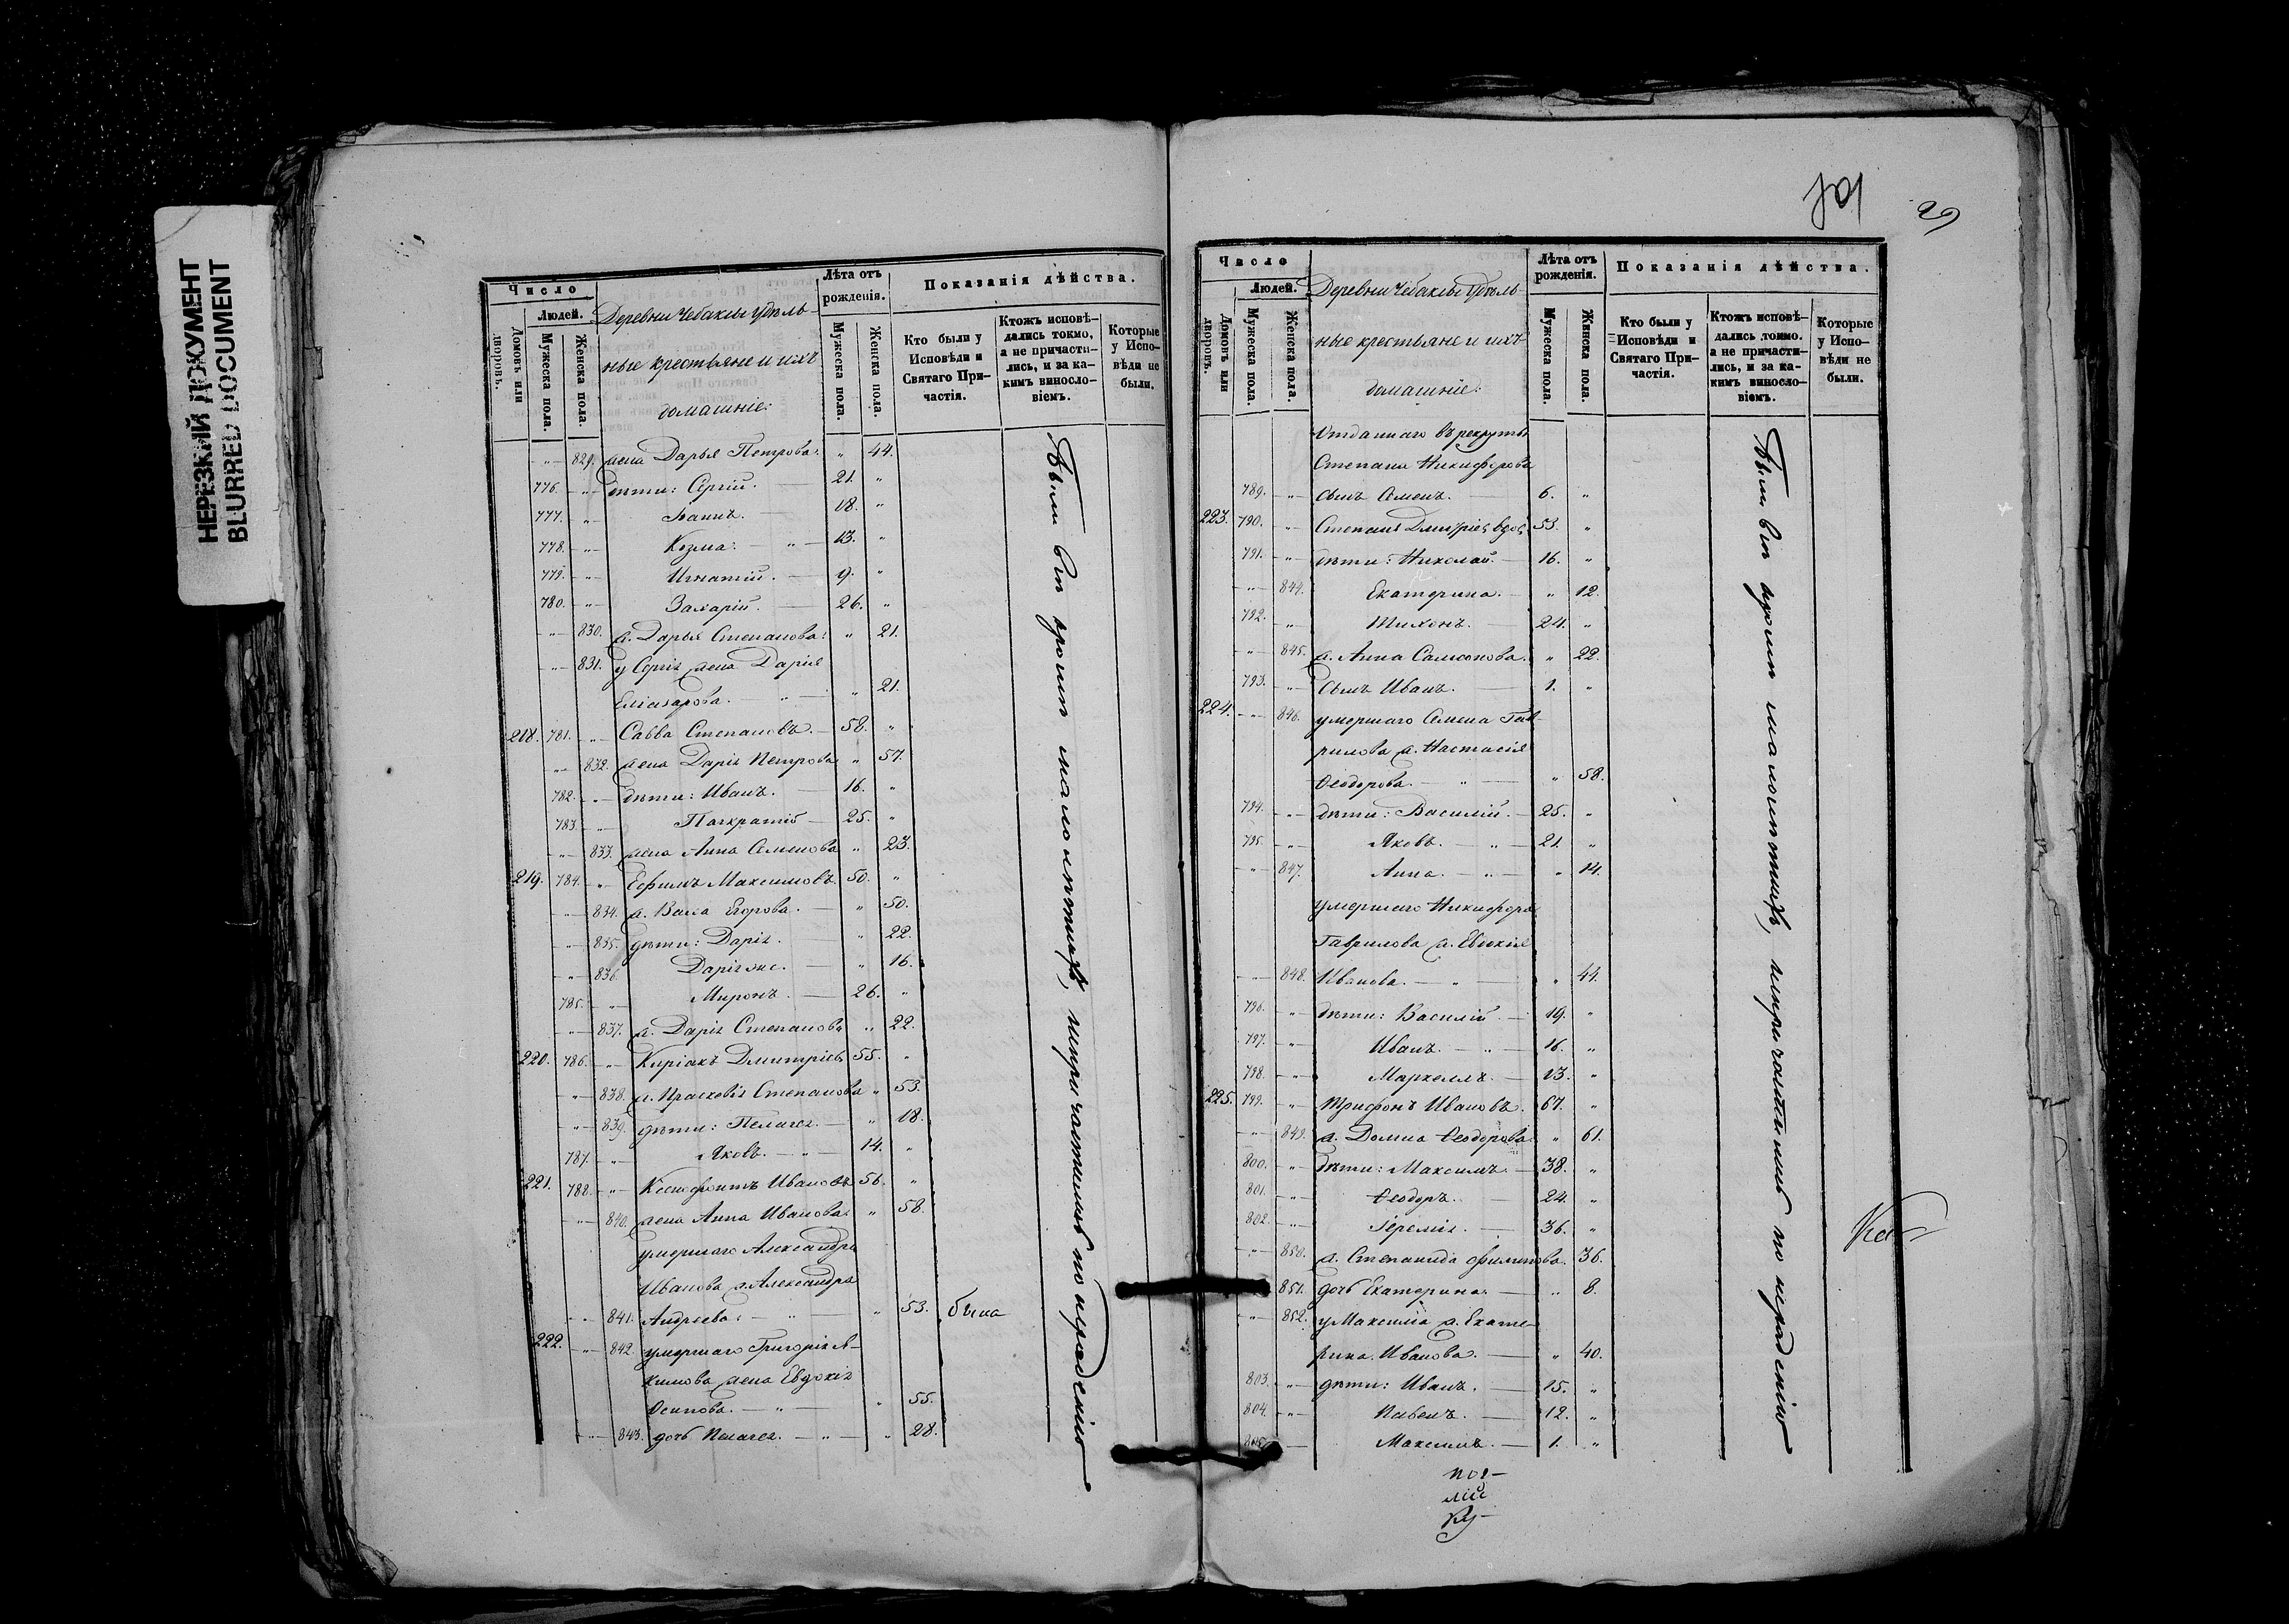 НЕРЕЗКИЙ ДОКУМЕНТ
BLURRED DOCUMENT
Число
Людей.
Домовъ или дворовъ.
Мужеска пола.
Женска пола.
Деревни Чебаклы удѣль-
ные крестьяне и ихъ
домашніе:
Лѣта отъ рожденія.
Мужеска пола.
Женска пола.
Показанія дѣйства.
Кто были у Исповѣди и Святаго Причастія.
Ктожъ исповѣдались токмо, а не причастились, и за какимъ винословіемъ.
Которые у Исповѣди не были.
„ 829. жена Дарья Петрова. „ 44.
776. „ дѣти: Сергій. 21. „
777. „ Іоаннъ. 18. „
778. „ Козма. „ 13. „
779. „ Игнатій. 9. „
780. „ Захарій. 26. „
„ 830. ж. Дарья Степанова. „ 21.
„ 831. у Сергія жена Дарія
Еліазарова. „ „ 21.
218. 781. „ Савва Степановъ. 58. „
„ 832. жена Дарія Петрова „ 57.
782. „ дѣти: Иванъ. 16. „
783. „ Панкратій 25. „
„ 833. жена Анна Семенова „ 23.
219. 784. „ Ефимъ Максимовъ. 50. „
„ 834. ж. Васса Егорова. „ 50.
„ 835. дѣти: Дарія. „ 22.
„ 836. Дарія же. „ 16.
785. „ Миронъ. 26. „
„ 837. ж. Дарія Степанова „ 22.
220. 786. „ Киріакъ Дмитріевъ 55. „
„ 838. ж. Прасковія Степанова „ 53.
„ 839. дѣти: Пелагея. „ 18.
787. „ Яковъ. „ 14. „
221. 788. „ Ксенофонтъ Ивановъ 56. „
„ 840. жена Анна Иванова „ 58.
умершаго Александра
Иванова ж. Александра
„ 841. Андреева. „ „ 53. была
222. „ 842. умершаго Григорія А-
кимова жена Евдокія
Осипова. „ „ 55.
„ 843. дочь Пелагея. „ „ 28.
Были всѣ кромѣ малолѣтнихъ, непричастились по нерадѣнію
101
29
Число
Людей.
Домовъ или дворовъ.
Мужеска пола.
Женска пола.
Деревни Чебаклы удѣль
ные крестьяне и ихъ
домашніе:
Лѣта отъ рожденія.
Мужеска пола.
Женска пола.
Показанія дѣйства.
Кто были у Исповѣди и Святаго Причастія.
Ктожъ исповѣдались токмо. а не причастились, и за какимъ винословіемъ.
Которые у Исповѣди не были.
Отданнаго въ рекруты
Степана Никифорова
789. „ сынъ Семенъ. 6. „
223. 790. „ Степанъ Дмитріевъ вдов. 53. „
791. „ дѣти: Николай. 16. „
„ 844. Екатерина. „ 12.
792. „ Тихонъ. 24. „
„ 845. ж. Анна Самсонова. „ 22.
793. „ сынъ Иванъ. 1. „
224. „ 846. умершаго Семена Гав-
рилова ж. Настасія
Ѳеодорова. „ „ 58.
794. „ дѣти: Василій. 25. „
795. „ Яковъ. „ 21. „
„ 847. Анна. „ „ 14.
умершаго Никифора
Гаврилова ж. Евдокія
„ 848. Иванова. „ „ 44.
796. „ дѣти: Василій. 19. „
797. „ Иванъ. „ 16. „
798. „ Маркеллъ. 13. „
225. 799. „ Трифонъ Ивановъ. 67. „
„ 849. ж. Домна Ѳеодорова „ 61.
800. „ дѣти: Максимъ. 38. „
801. „ Ѳеодоръ. 24. „
802. „ Іеремія. 36. „
„ 850. ж. Степанида Филипова. 36.
851. дочь Екатерина. „ 8.
„ 852. у Максима ж. Екате-
рина Иванова. „ 40.
803. „ дѣти: Иванъ. 15. „
804. „ Павелъ. 12. „
805. Максимъ. 1. „
Были всѣ кромѣ малолѣтнихъ, непричастились по нерадѣнію